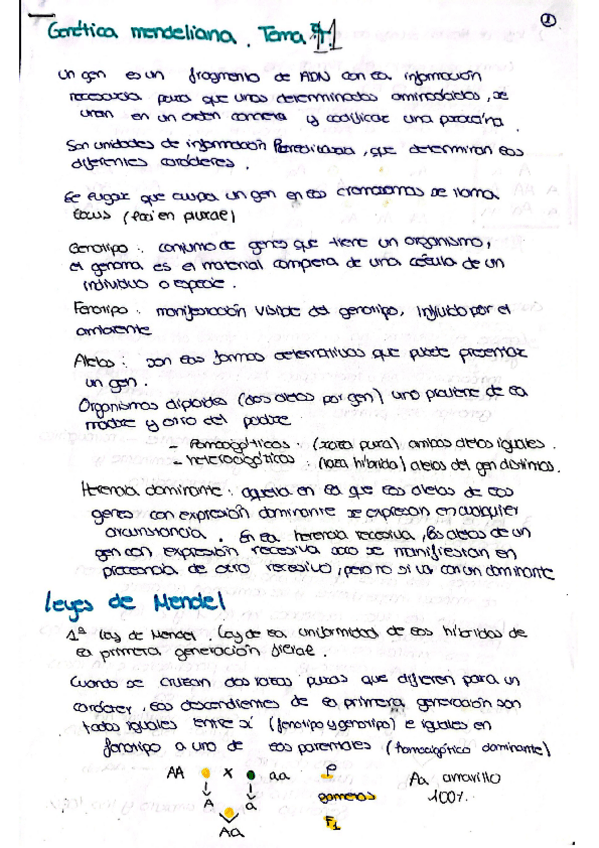 ①
Genética mendeliana. Tema 11
un gen es un fragmento de ADN con la información
necesaria para que unos determinados aminoácidos, se
unan en un orden correcto y codificar una proteína.
Son unidades de información hereditaria, que determinan los
diferentes caracteres.
Ee lugar que ocupa un gen en los cromosomas se llama
locus (loci en plural)
Genotipo: conjunto de genes que tiene un organismo,
el genoma es el material completa de una célula de un
individuo o especie.
Fenotipo: manifestación visible del genotipo, influido por el
ambiente
Alelos: son las formas alternativas que puede presentar
un gen.
Organismos diploides (dos alelos por gen) uno proviene de la
madre y otro del padre.
homocigóticos: (raza pura) ambos alelos iguales.
- heterocigóticos: (raza híbrida) alelos del gen distintos.
Herencia dominante: aquella en la que los alelos de los
genes con expresión dominante se expresan en cualquier
circunstancia. En la herencia recesiva, los alelos de un
gen con expresión recesiva solo se manifiestan en
presencia de otro recesivo, pero no si va con un dominante
Leyes de Mendel
1ª Ley de Mendel. Ley de la uniformidad de los híbridos de
la primera generación filial.
Cuando se cruzan dos razas puras que difieren para un
carácter, los descendientes de la primera generación son
todos iguales entre sí (fenotipo y genotipo) e iguales en
fenotipo a uno de los parentales (homocigótico dominante)
AA x aa P Aa amarillo
A a gametos 100%
Aa F1